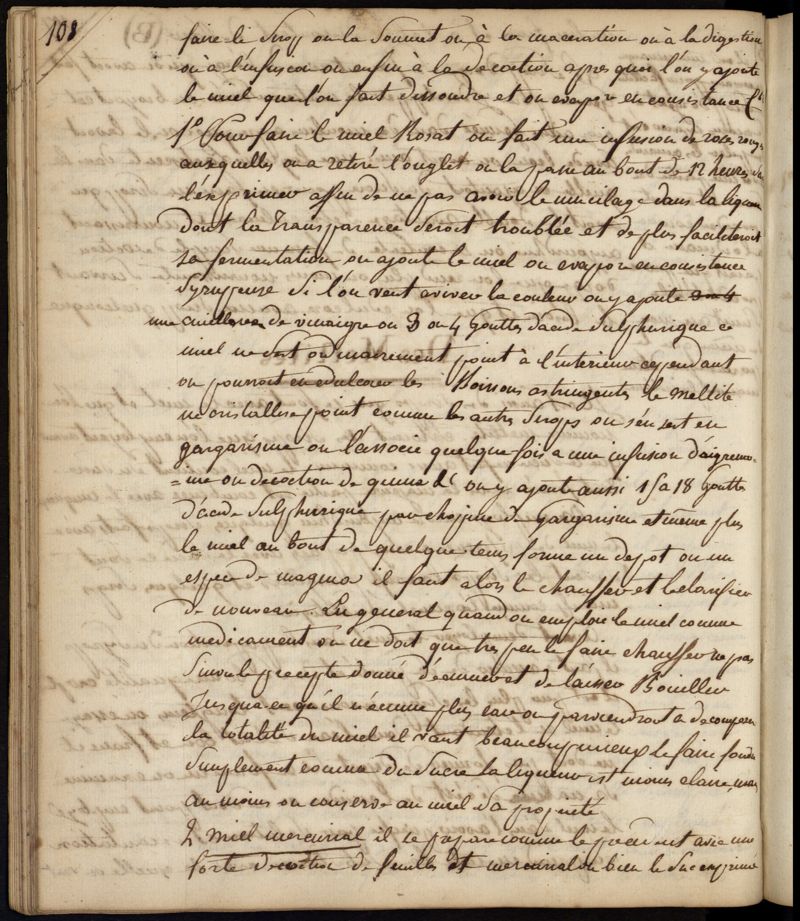 108
faire le Sirop ou la Soumet ou à la maceration ou à la digestion
ou à l'infusion ou enfin à la decoction apres quoi l'on y ajoute
le miel que l'on fait dissoudre et on evapore en consistance
1° Pour faire le miel Rosat on fait une infusion de roses roug=
auxquelles on a retiré l'onglet on la passe au bout de 12 heures
l'exprimer affin de ne pas avoir le mucilage dans la liqueur
dont la Transparence seroit troublée et de plus faciliteroit
sa fermentation on ajoute le miel on evapore en consistance
Syrupeuse Si l'on veut aviver la couleur on y ajoute
une cuilleree de vinaigre ou 3 ou 4 Gouttes d'acide Sulphurique ce
miel ne sert ordinairement point à l'interieur cependant
on pourroit en edulcorer les Boissons astringentes le mellite
ne cristallise point comme les autres Sirops on s'en sert en
gargarisme on l'associe quelque fois a une infusion d'aigremo=
=ine ou decoction de quina &c on y ajoute aussi 15 a 18 Goutte
d'acide Sulphurique par chopine de Gargarisme et meme plus
le miel au bout de quelque tems forme un depot ou un
espece de magma il faut alors le chauffer et le clarifier
de nouveau. En general quand on emploie le miel comme
medicament on ne doit que tres peu le faire chauffer ne pas
Suivre le precepte donné d'ecumer et de laisser Bouillir
Jusqua ce qu'il n'ecume plus car on parviendroit a decomposer
la totalité du miel il vaut beaucoup mieux le faire fondre
Simplement comme du Sucre la liqueur est moins claire, mais
au moins on conserve au miel sa propriété
2 miel mercurial il se prepare comme le precedent avec une
forte decoction de feuilles de mercuriale ou bien le Suc exprimé